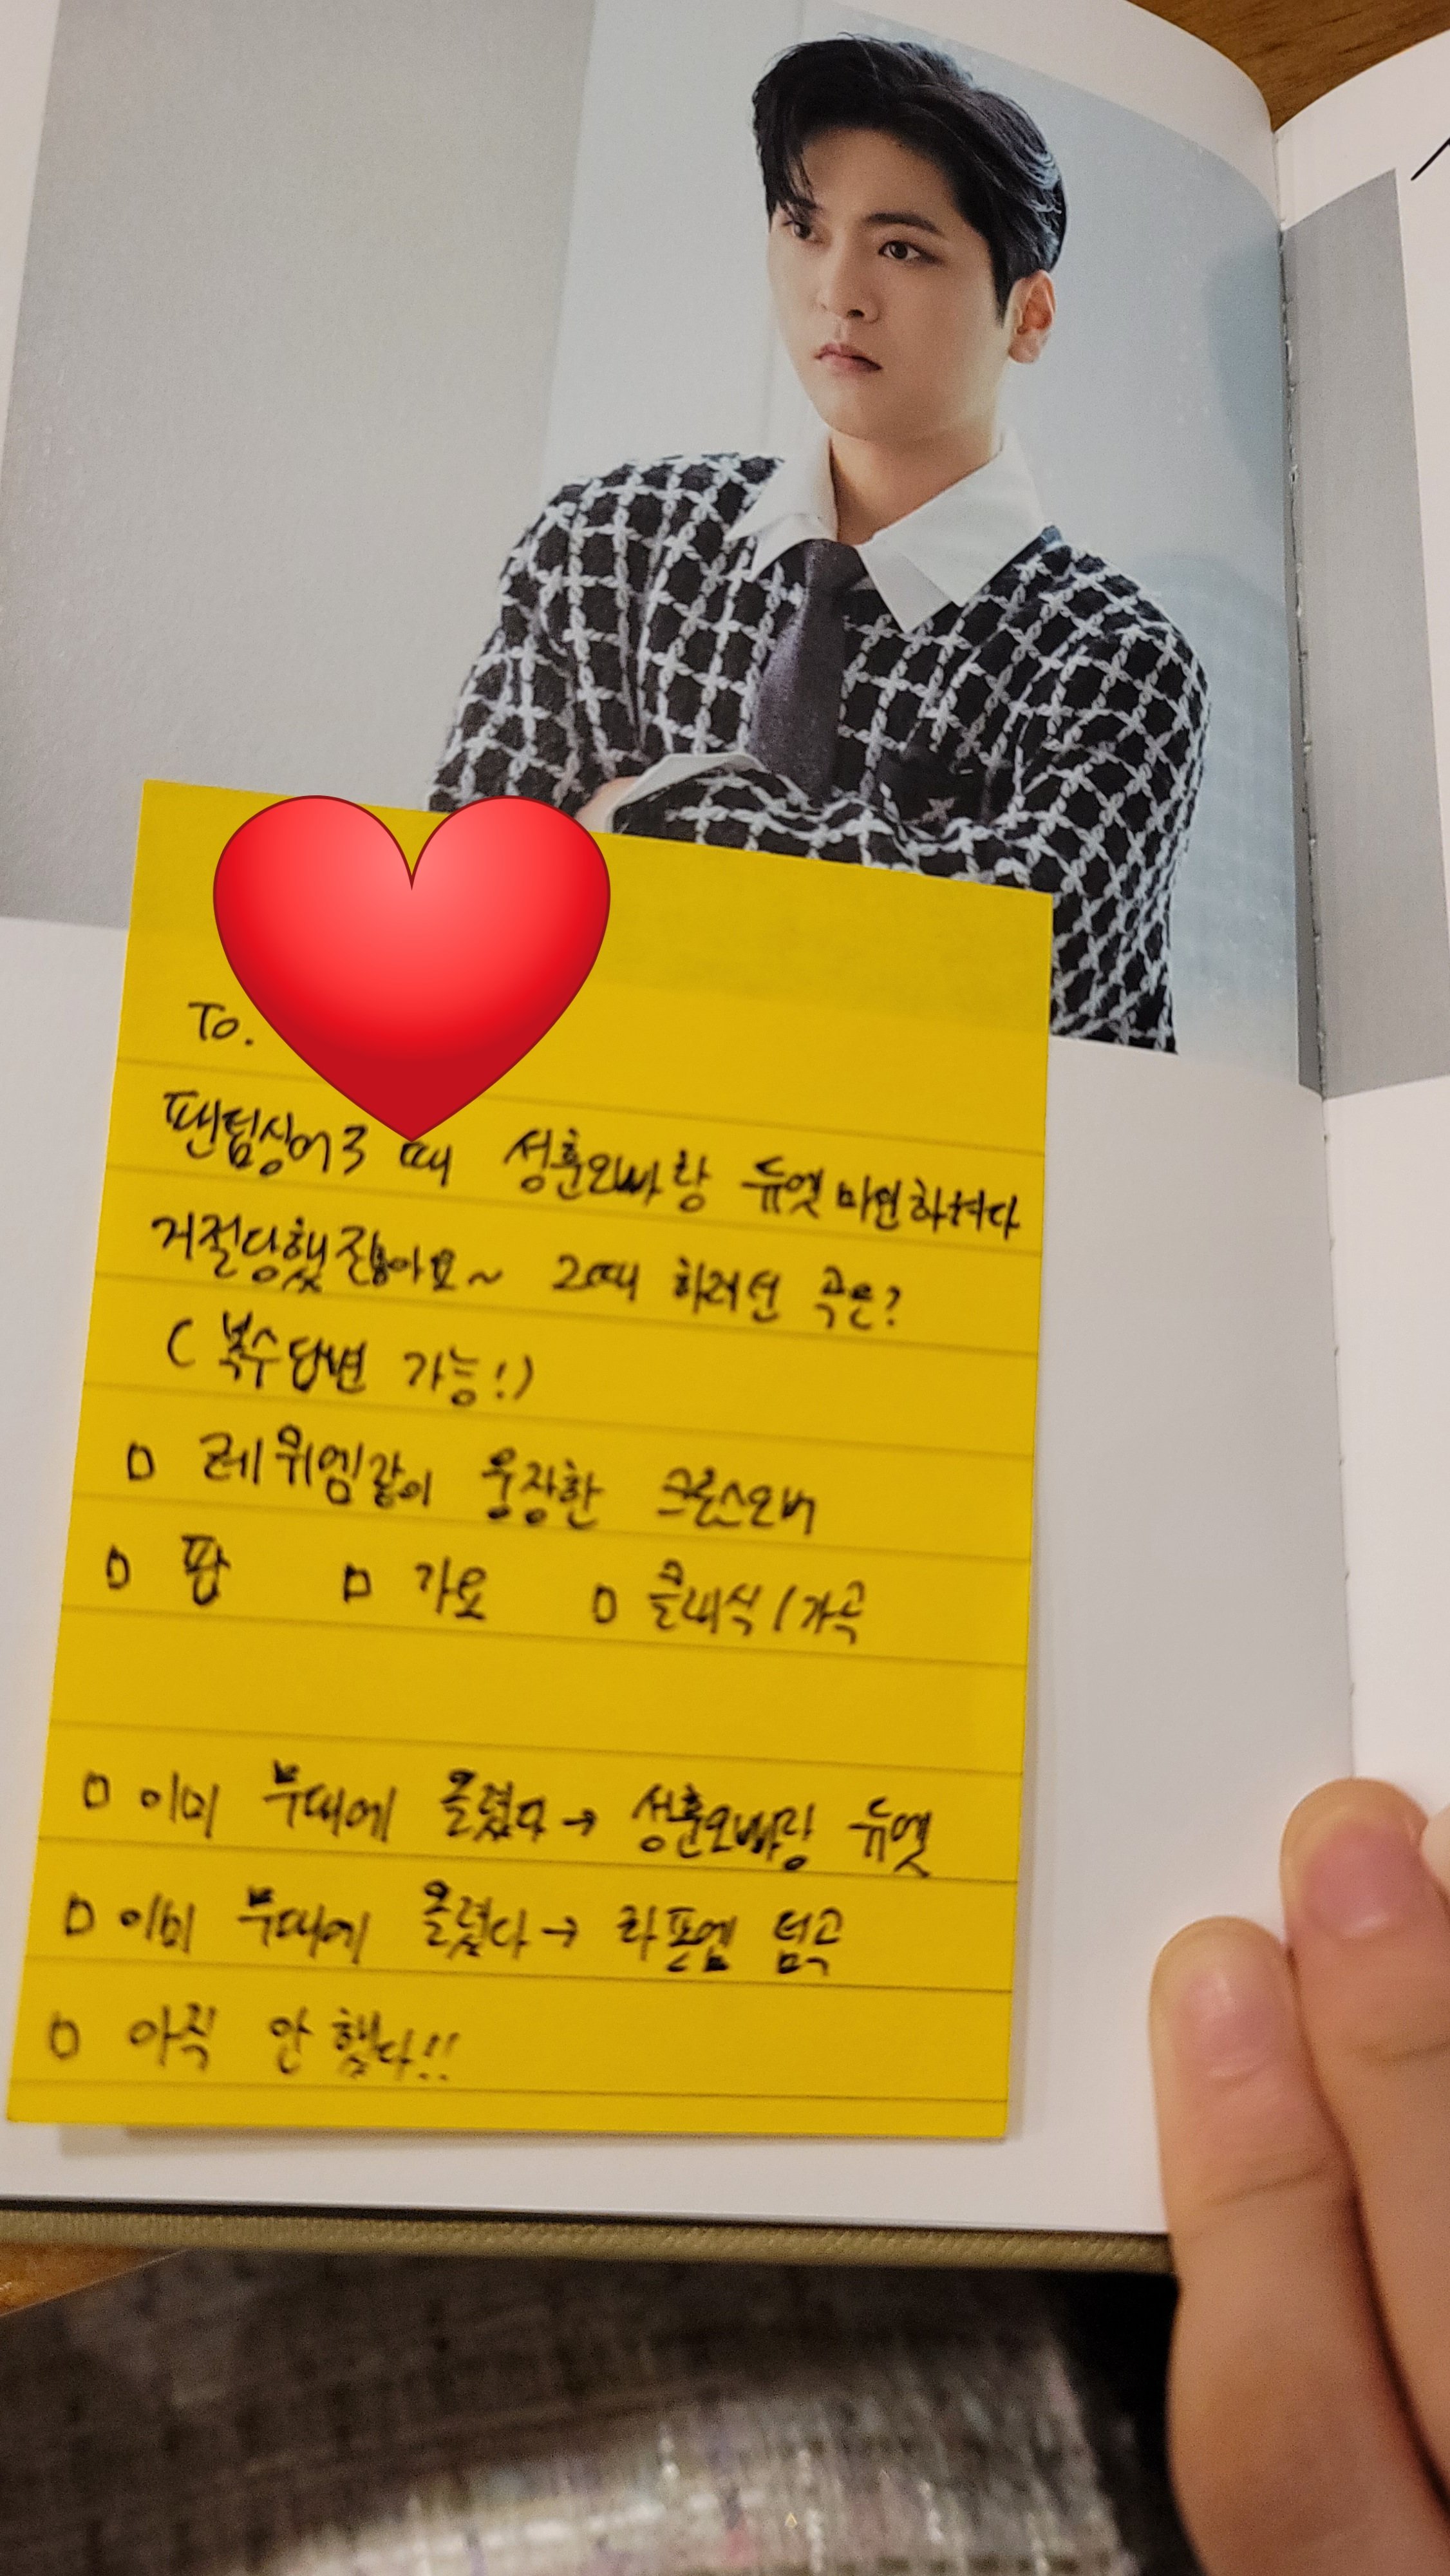 To.
팬텀싱어3 때 성훈오빠랑 듀엣 하려다
거절당했잖아요~ 그때 하려던 곡은?
( 복수답변 가능!)
□ 레퀴엠같이 웅장한 크로스오버
□ 팝 □ 가요 □ 클래식/가곡
□ 이미 무대에 올렸다 → 성훈오빠랑 듀엣
□ 이미 무대에 올렸다 → 라포엠 텀곡
□ 아직 안 했다!!